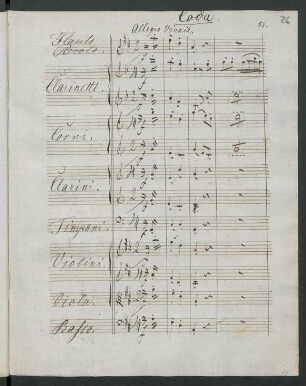 Coda.
Allegro Vivace.
51.
26
Flauto
Piccolo.
Clarinetti.
Corni.
Clarini.
Timpani.
Violini.
Viola.
Basso.